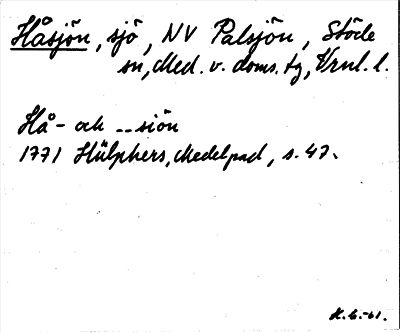 Håsjön, sjö, NV Palsjön, Stöde
sn, Med. v. doms. tg, Vrnl. l.
Hå- och --siön
1771 Hülphers, Medelpad, s. 47.
H.G.-61.